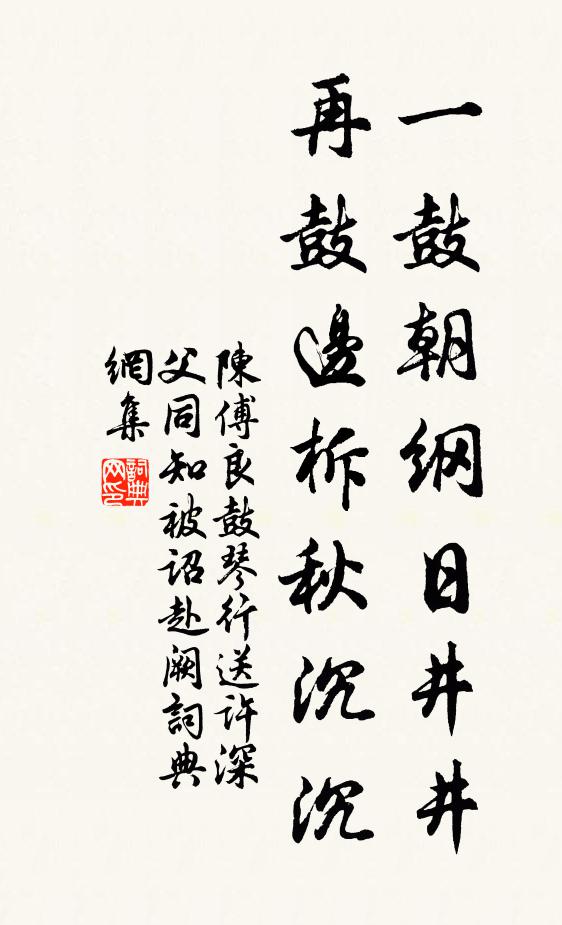 一鼓朝纲日井井
再鼓邊柝秋沉沉
陳傅良鼓琴行送許深
父同知被诏赴阙詞典
網集
詞典网印